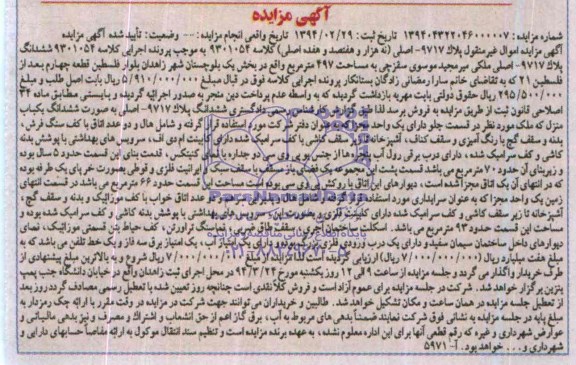 آگهی مزایده
شماره مزایده: ۱۳۹۴۰۴۳۲۲۰۴۶۰۰۰۰۰۷ تاریخ ثبت: ۱۳۹۴/۰۲/۲۹ تاریخ واقعی انجام مزایده: -- وضعیت: تأیید شده آگهی مزایده
آگهی مزایده اموال غیرمنقول پلاک ۹۷۱۷- اصلی (نه هزار و هفتصد و هفده اصلی) کلاسه ۹۳۰۱۰۵۴ به موجب پرونده اجرایی کلاسه ۹۳۰۱۰۵۴ ششدانگ
پلاک ۹۷۱۷- اصلی ملکی میرمجید موسوی سقزچی به مساحت ۴۹۷ مترمربع واقع در بخش یک بلوچستان شهر زاهدان بلوار فلسطین قطعه چهارم بعد از
فلسطین ۲۱ که به تقاضای خانم سارا رمضانی زادگان بستانکار پرونده اجرایی کلاسه فوق در قبال مبلغ ۵/۹۱۰/۰۰۰/۰۰۰ ریال بابت اصل طلب و مبلغ
۲۹۵/۵۰۰/۰۰۰ ریال حقوق دولتی بابت مهریه بازداشت گردیده که به واسطه عدم پرداخت دین منجر به صدور اجرائیه گردیده و بایستی مطابق ماده ۳۴
اصلاحی قانون ثبت از طریق مزایده به فروش برسد لذا طبق گزارش کارشناس رسمی دادگستری ششدانگ پلاک ۹۷۱۷- اصلی به صورت ششدانگ یکباب
منزل که ملک مورد نظر در قسمت جلو دارای یک واحد مجزا که به عنوان دفتر شرکت مورد استفاده قرار گرفته و شامل هال و دو عدد اتاق با کف سنگ فرش،
بدنه و سقف گچ با رنگ آمیزی و سقف کناف، آشپزخانه تا زیر سقف کاشی با کف سرامیک شده دارای کابینت ام دی اف، سرویس های بهداشتی با پوشش بدنه
کاشی و کف سرامیک شده، دارای درب برقی رول آپ پنجره ها از جنس یو پی وی سی دو جداره با نمای کنیتکس، قدمت بنای این قسمت حدود ۵ سال بوده
و زیربنای آن حدود ۷۰ مترمربع می باشد قسمت پشت این مجموعه یک فضای باز مسقف با سقف سبک ایرانیت فلزی و قوطی بصورت خرپای یک طرفه بوده
که در انتهای آن یک اتاق مجزا شده است، دیوارهای این اتاق با روکش پی وی سی بوده است مساحت این قسمت حدود ۶۶ مترمربع می باشد در قسمت انتهای
زمین یک واحد مجزا که به عنوان سرایداری مورد استفاده قرار گرفته شامل هال و دو عدد اتاق خواب با کف موزائیک و بدنه و سقف گچ،
آشپزخانه تا زیر سقف کاشی و کف سرامیک شده دارای کابینت فلزی و بصورت اپن، سرویس های بهداشتی با پوشش بدنه کاشی و کف سرامیک شده بوده و
مساحت این قسمت حدود ۹۳ مترمربع می باشد. اسکلت ساختمان آجری سقف طاق ضربی و نماسنگ تراورتن، کف حیاط بتن قسمتی موزائیک، نمای
دیوارهای داخل ساختمان سیمان سفید و دارای یک درب ورودی فلزی بزرگ بوده و دارای یک امتیاز آب، یک امتیاز برق سه فاز و یک خط تلفن می باشد که به
مبلغ هفت میلیارد ریال (۷/۰۰۰/۰۰۰/۰۰۰ ریال) ارزیابی گردیده است ۷/۰۰۰/۰۰۰/۰۰۰ ریال شروع و به بالاترین مبلغ پیشنهادی از
طرف خریدار واگذار می گردد و جلسه مزایده از ساعت ۹ الی ۱۲ روز یکشنبه مورخ ۹۴/۳/۲۴ در محل اجرای ثبت زاهدان واقع در خیابان دانشگاه جنب پمپ
بنزین برگزار خواهد شد. شرکت در جلسه مزایده برای عموم آزاد است و فروش کلاً نقدی است چنانچه روز تعیین شده با تعطیل رسمی مصادف گردد روز بعد
از تعطیل جلسه مزایده در همان ساعت و مکان تشکیل خواهد شد. طالبین و خریداران می توانند جهت شرکت در مزایده در وقت مقرر با ارائه چک رمزدار به
مبلغ پایه در جلسه مزایده به نشانی فوق شرکت نمایند ضمناً بدهی های مربوط به آب، برق گاز اعم از حق انشعاب و اشتراک و مصرف و نیز بدهی مالیاتی و
عوارض شهرداری و غیره که رقم قطعی آنها برای این اداره معلوم نشده، به عهده برنده مزایده است و تنظیم سند انتقال موکول به ارائه مفاصا حسابهای دارایی و
شهرداری و... خواهد بود. آ-۵۹۷۱